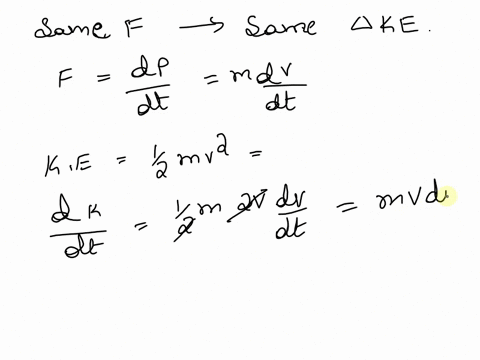 Same F → Same △KE.
F = dP/dt = m dv/dt
K.E = 1/2 mv² =
dK/dt = 1/2 m 2v dv/dt = mvd